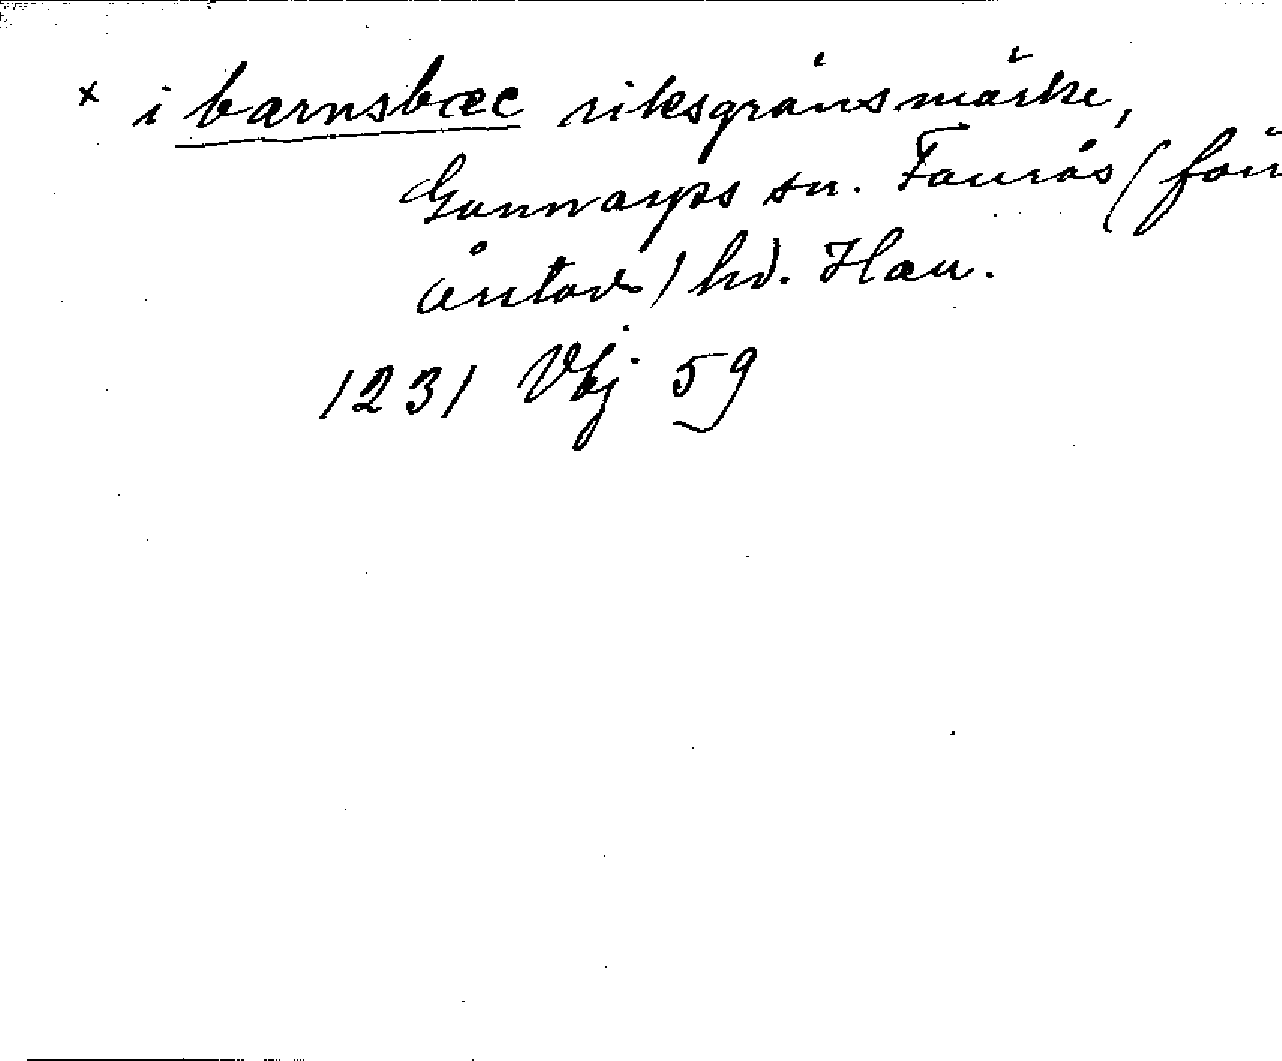 × i barnsbæc riksgränsmärke,
Gunnarps sn. Faurås (för
Årstads) hd. Hall.
1231 Vbj 59